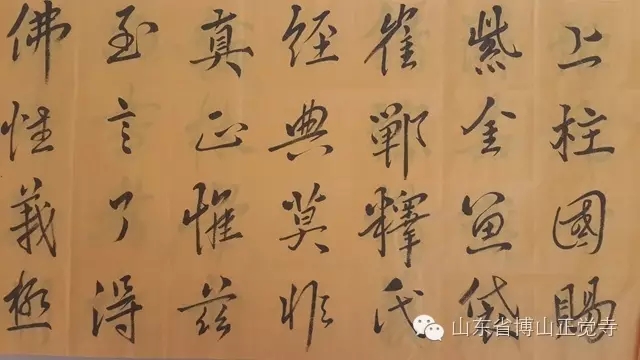 上柱國賜
紫金魚袋
崔鄲釋氏
經典莫非
真正惟兹
至言了得
佛性義極
山东省博山正觉寺